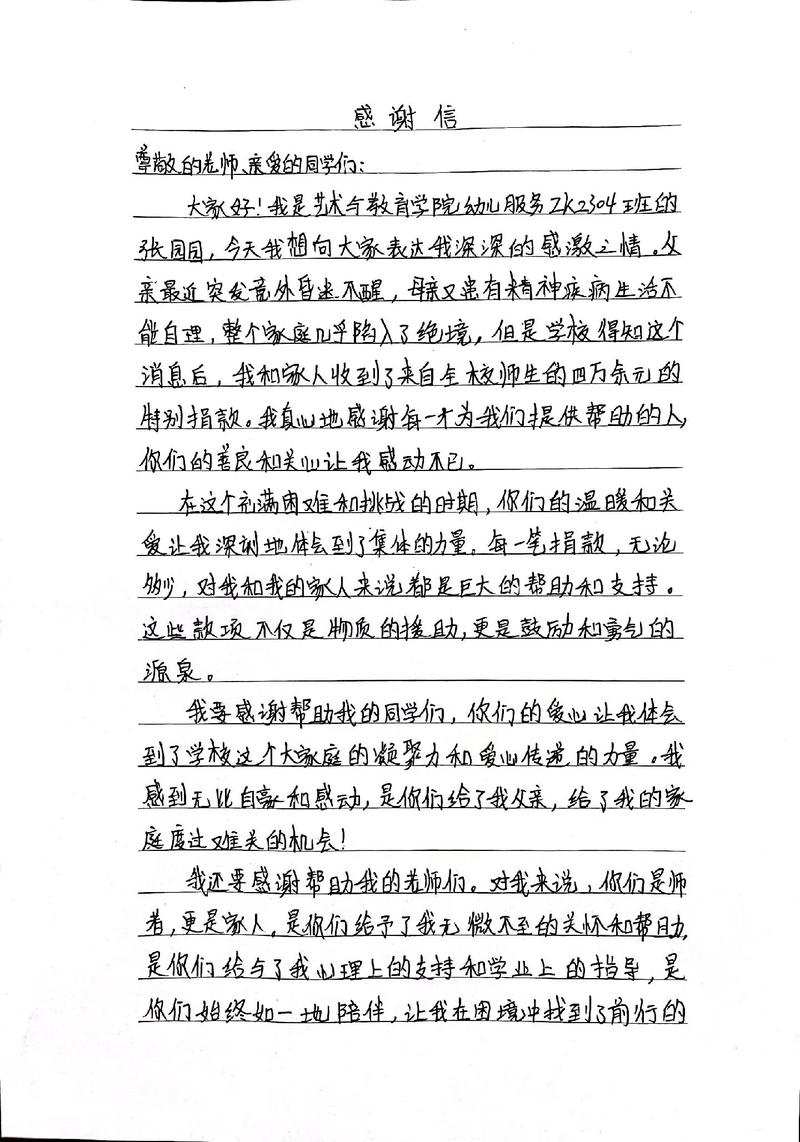 感谢信
尊敬的老师、亲爱的同学们：
大家好！我是艺术与教育学院幼儿服务ZK2304班的
张园园，今天我想向大家表达我深深的感激之情。父
亲最近突发意外昏迷不醒，母亲又患有精神疾病生活不
能自理，整个家庭几乎陷入了绝境，但是学校得知这个
消息后，我和家人收到了来自全校师生的四万余元的
特别捐款。我真心地感谢每一个为我们提供帮助的人，
你们的善良和关心让我感动不已。
在这个充满困难和挑战的时期，你们的温暖和关
爱让我深刻地体会到了集体的力量。每一笔捐款，无论
多少，对我和我的家人来说都是巨大的帮助和支持。
这些款项不仅是物质的援助，更是鼓励和勇气的
源泉。
我要感谢帮助我的同学们，你们的爱心让我体会
到了学校这个大家庭的凝聚力和爱心传递的力量。我
感到无比自豪和感动，是你们给了我父亲，给了我的家
庭度过难关的机会！
我还要感谢帮助我的老师们。对我来说，你们是师
者，更是家人，是你们给予了我无微不至的关怀和帮助，
是你们给与了我心理上的支持和学业上的指导，是
你们始终如一地陪伴，让我在困境中找到了前行的